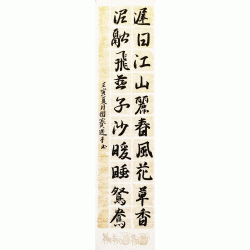 遲日江山麗春風花草香
泥融飛燕子沙暖睡鴛鴦
寅夏月